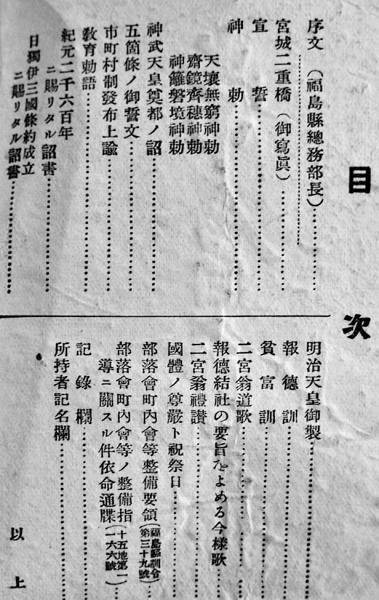 目次
序文(福島縣總務部長)
宮城二重橋(御寫眞)
宣誓
神勅
天壤無窮神勅
齋鏡齊穗神勅
神籬磐境神勅
神武天皇奠都ノ詔
五箇條ノ御誓文
市町村制發布上諭
敎育勅語
紀元二千六百年
ニ賜リタル詔書
日獨伊三國條約成立
ニ賜リタル詔書
明治天皇御製
報德訓
貧富訓
二宮翁道歌
報德結社の要旨をよめる今樣歌
二宮翁禮讃
國體ノ尊嚴ト祝祭日
部落會町內會等整備要領(福島縣訓令第三十九號)
部落會町內會等ノ整備指
導ニ關スル件依命通牒(十五地第一一六六號)
記錄欄
所持者記名欄
以上